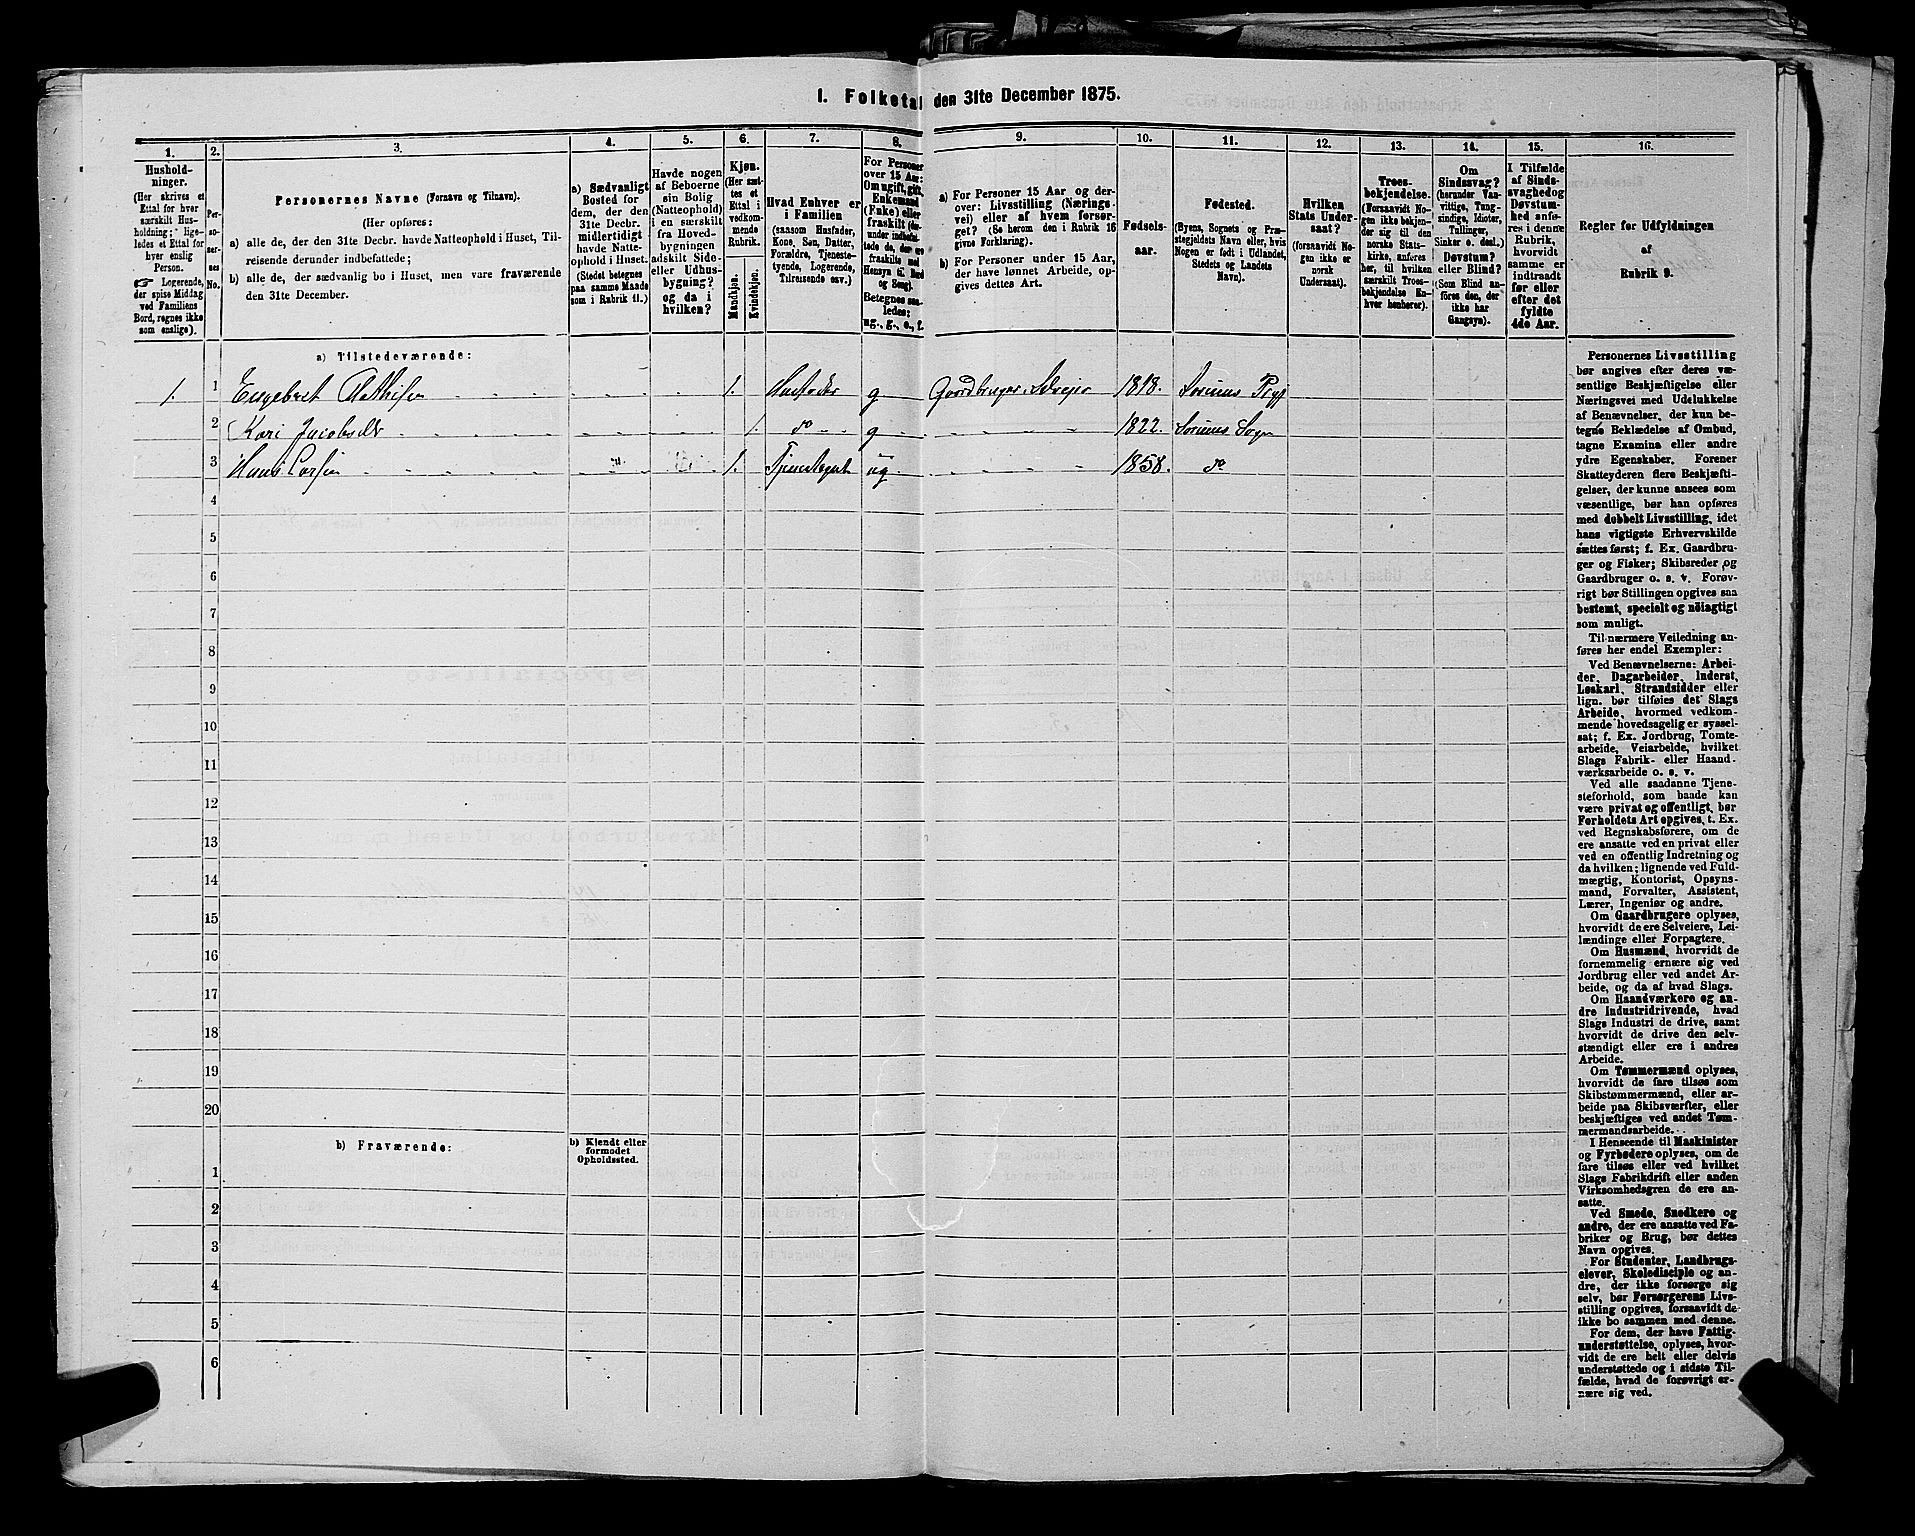 I. Folketal den 31te December 1875.
1. 2. 3. 4. 5. 6. 7. 8. 9. 10. 11. 12. 13. 14. 15. 16.
Hushold-
ninger.
(Her skrives et
Ettal for hver
særskilt Hus-
holdning; lige-
ledes et Ettal for
hver enslig
Person.
☞ Logerende,
der spise Middag
ved Familiens
Bord, regnes ikke
som enslige).
Per-
so-
ner-
nes
No.
Personernes Navne (Fornavn og Tilnavn).
(Her opføres:
a) alle de, der den 31te Decbr. havde Natteophold i Huset, Til-
reisende derunder indbefattede;
b) alle de, der sædvanlig bo i Huset, men vare fraværende
den 31te December.
a) Sædvanligt
Bosted for
dem, der den
31te Decbr.
midlertidigt
havde Natte-
ophold i Huset.
(Stedet betegnes
paa samme Maade
som i Rubrik 11.)
Havde nogen
af Beboerne
sin Bolig
(Natteophold)
i en særskilt
fra Hoved-
bygningen
adskilt Side-
eller Udhus-
bygning?
og da i
hvilken?
Kjøn.
(Her sæt-
tes et
Ettal i
vedkom-
mende
Rubrik.
Mandkjøn.
Kvindekjøn.
Hvad Enhver er
i Familien
(saasom Husfader,
Kone, Søn, Datter,
Forældre, Tjeneste-
tyende, Logerende,
Tilreisende osv.)
For Personer
over 15 Aar:
Om ugift, gift,
Enkemand
(Enke) eller
fraskilt (der-
under indbefat-
tede de, der ere
fraskilte med
Hensyn til Bord
og Seng).
Betegnes saa-
ledes:
ug., g., e., f.
a) For Personer 15 Aar og der-
over: Livsstilling (Nærings-
vei) eller af hvem forsør-
get? (Se herom den i Rubrik 16
givne Forklaring).
b) For Personer under 15 Aar,
der have lønnet Arbeide, op-
gives dettes Art.
Fødsels-
aar.
Fødested.
(Byens, Sognets og Præ-
stegjeldets Navn eller, hvis
Nogen er født i Udlandet,
Stedets og Landets
Navn).
Hvilken
Stats Under-
saat?
(forsaavidt No-
gen ikke er
norsk
Undersaat).
Troes-
bekjendelse.
(Forsaavidt No-
gen ikke bekjen-
der sig til den
norske Stats-
kirke, anføres
her, til hvilken
særskilt Troes-
bekjendelse En-
hver henhører).
Om
Sindssvag?
(herunder Van-
vittige, Tung-
sindige, Idioter,
Tullinger,
Sinker o. desl.)
Døvstum?
eller Blind?
(Som Blind an-
føres den, der
ikke har
Gangsyn).
I Tilfælde
af Sinds-
svaghed og
Døvstum-
hed anfø-
res i denne
Rubrik,
hvorvidt
samme er
indtraadt
før eller
efter det
fyldte
4de Aar.
Regler for Udfyldningen
af
Rubrik 9.
a) Tilstedeværende:
1. 1 Engebret Mathisen 1. Husfader g Gaardbruger, Selveier 1818. Sørums Prgj
2 Kari Jacobsdtr 1. do g 1822. Sørums Sogn
3 Hans Larsen 1. Tjenestegut ug 1858. do
4
5
6
7
8
9
10
11
12
13
14
15
16
17
18
19
20
b) Fraværende:
b) Kjendt eller
formodet
Opholdssted.
1
2
3
4
5
6
Personernes Livsstilling
bør angives efter deres væ-
sentlige Beskjæftigelse eller
Næringsvei med Udelukkelse
af Benævnelser, der kun be-
tegne Beklædelse af Ombud,
tagne Examina eller andre
ydre Egenskaber. Forener
Skatteyderen flere Beskjæfti-
gelser, der kunne ansees som
væsentlige, bør han opføres
med dobbelt Livsstilling, idet
hans vigtigste Erhvervskilde
sættes først; f. Ex. Gaardbru-
ger og Fisker; Skibsreder og
Gaardbruger o. s. v. Forøv-
rigt bør Stillingen opgives saa
bestemt, specielt og nöiagtigt
som muligt.
Til nærmere Veiledning an-
føres her endel Exempler:
Ved Benævnelserne: Arbei-
der, Dagarbeider, Inderst,
Løskarl, Strandsidder eller
lign. bør tilføies det Slags
Arbeide, hvormed vedkom-
mende hovedsagelig er syssel-
sat; f. Ex. Jordbrug, Tomte-
arbeide, Veiarbeide, hvilket
Slags Fabrik- eller Haand-
værksarbeide o. s. v.
Ved alle saadanne Tjene-
steforhold, som baade kan
være privat og offentligt, bør
Forholdets Art opgives, t. Ex.
ved Regnskabsførere, om de
ere ansatte ved en privat eller
ved en offentlig Indretning og
da hvilken; lignende ved Fuld-
mægtig, Kontorist, Opsyns-
mand, Forvalter, Assistent,
Lærer, Ingeniør og andre.
Om Gaardbrugere oplyses,
hvorvidt de ere Selveiere, Lei-
lændinge eller Forpagtere.
Om Husmænd, hvorvidt de
fornemmelig ernære sig ved
Jordbrug eller ved andet Ar-
beide, og da af hvad Slags.
Om Haandværkere og an-
dre Industridrivende, hvad
Slags Industri de drive, samt
hvorvidt de drive den selv-
stændigt eller ere i andres
Arbeide.
Om Tømmermænd oplyses,
hvorvidt de fare tilsøs som
Skibstømmermænd, eller ar-
beide paa Skibsværfter, eller
beskjæftiges ved andet Tøm-
mermandsarbeide.
I Henseende til Maskinister
og Fyrbødere oplyses, om de
fare tilsøs eller ved hvilket
Slags Fabrikdrift eller anden
Virksomhedsgren de ere an-
satte.
Ved Smede, Snedkere og
andre, der ere ansatte ved Fa-
briker og Brug, bør dettes
Navn opgives.
For Studenter, Landbrugs-
elever, Skoledisciple og an-
dre, der ikke forsørge sig
selv, bør Forsørgerens Livs-
stilling opgives, forsaavidt de
ikke bo sammen med denne.
For dem, der have Fattig-
understøttelse, oplyses, hvor-
vidt de ere helt eller delvis
understøttede og i sidste Til-
fælde, hvad de forøvrigt er-
nære sig ved.